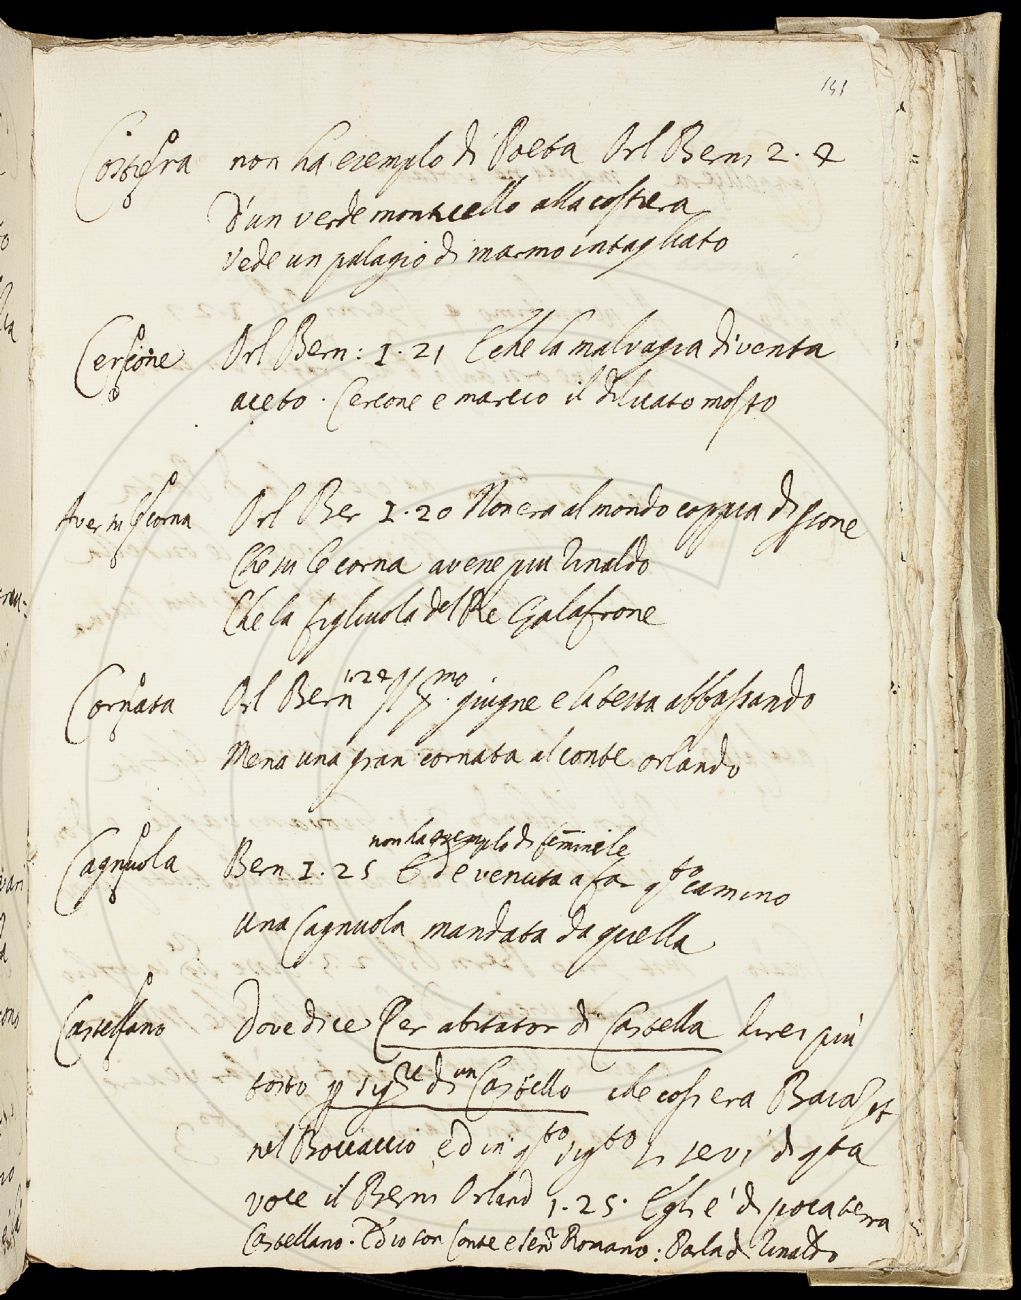 151
Costiera non ha esemplo di Poeta Orl Berni 2. 2
D'un verde monticello alla costiera
Vede un palagio di marmo intagliato
Cercone Orl Bern: 1. 21 E che la malvagia diventa
aceto. Cercone e marcio il dilicato mosto
Aver su le corna Orl Ber 1. 20 Non era al mondo coppia di persone
Che su le corna avene piu Rinaldo
Che la figliuola del Re Galafrone
Cornata Orl Bern giugne e la testa abbassando
Mena una gran cornata al conte orlando
non ha esemplo di feminile
Cagnuola Bern 1. 25 Ed è venuta a far q.to camino
una Cagnuola mandata da quella
Castellano Dove dice Per abitator di Castella direi più
tosto p sig.re di un Castello che cosi era
nel Boccaccio ed in q.to sig.to si servi di q.ta
voce il Berni Orland 1. 25. Egli è di poca terra
Castellano. Ed io son Conte e Sen.r Romano: Parla di Rinaldo